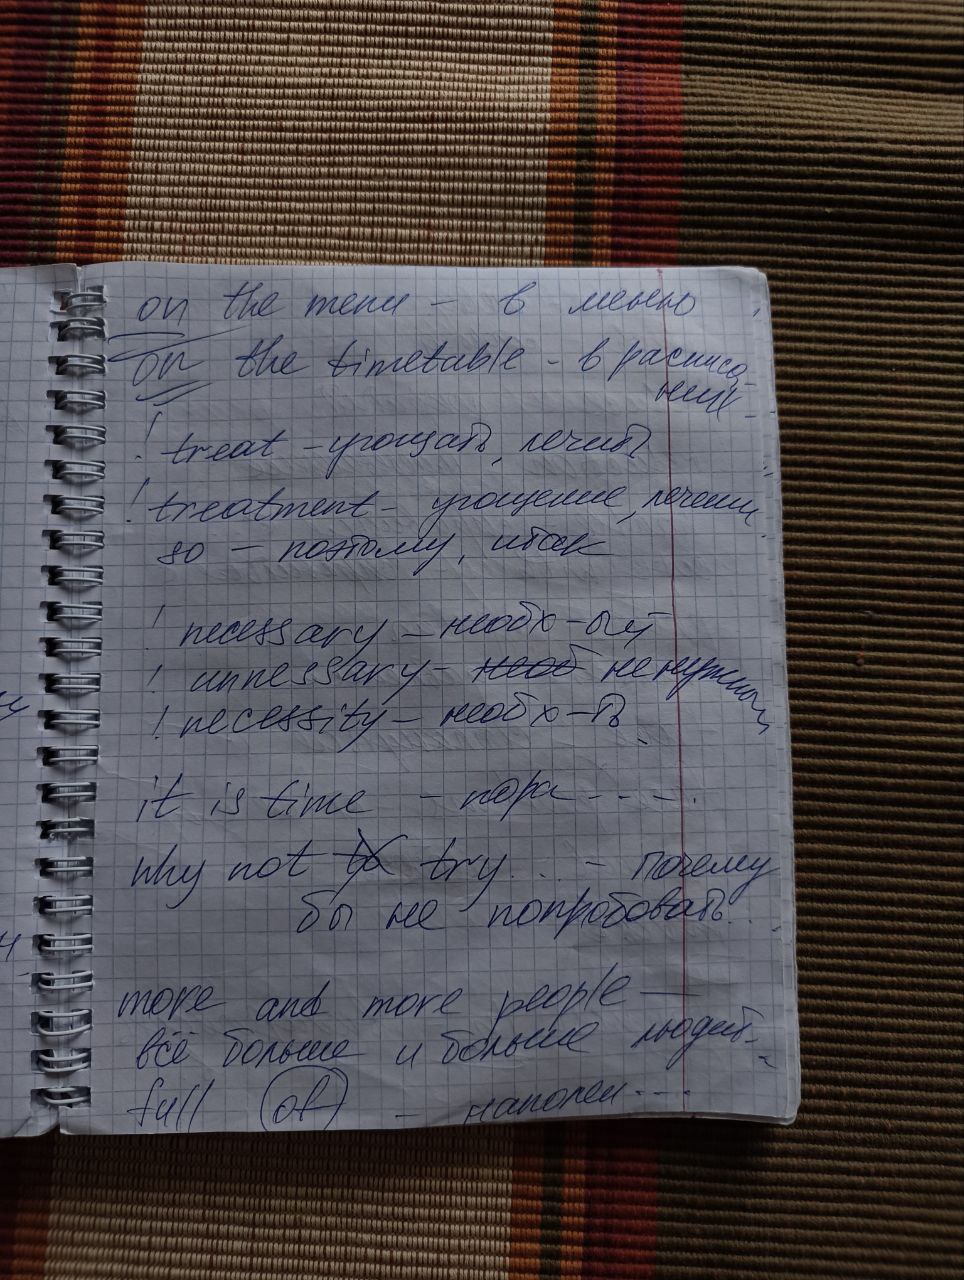 on the menu - в меню
on the timetable - в расписа-
нии
! treat - угощать, лечить
! treatment - угощение, лечение
so - поэтому, итак
! necessary - необх-ый
! unnessary - необ ненужный
! necessity - необх-ть
it is time - пора ....
why not to try ... - почему
бы не попробовать ...
more and more people -
всё больше и больше людей
full of - наполнен ...